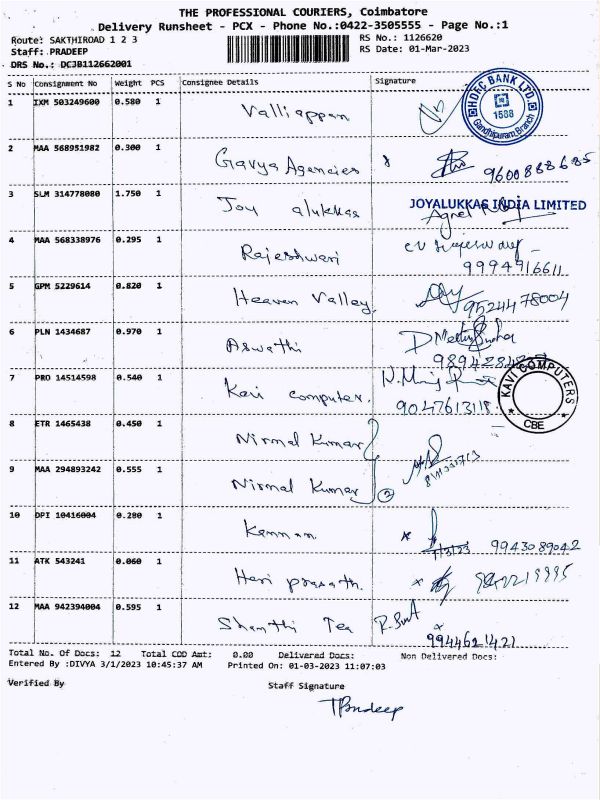 THE PROFESSIONAL COURIERS, Coimbatore
Delivery Runsheet - PCX - Phone No.:0422-3505555 - Page No.:1
Route: SAKTHIROAD 1 2 3 RS No.: 1126620
Staff: PRADEEP RS Date: 01-Mar-2023
DRS No.: DCJB112662001
S No Consignment No Weight PCS Consignee Details Signature
1 IXM 503249600 0.580 1 Valliappan
HDFC BANK LTD. 1588 Gandhipuram Branch
2 MAA 568951982 0.300 1 Gavya Agencies 9600888685
3 SLM 314778080 1.750 1 Joy alukkas JOYALUKKAS INDIA LIMITED
4 MAA 568338976 0.295 1 Rajeshwari
9994916611
5 GPM 5229614 0.820 1 Heaven Valley. 9524478004
6 PLN 1434687 0.970 1 Aswathi
7 PRO 14514598 0.540 1 Kavi computer.
9047613118
KAVI COMPUTERS CBE
8 ETR 1465438 0.450 1 Nirmal Kumar
9 MAA 294893242 0.555 1 Nirmal Kumar 2
10 DPI 10416004 0.280 1 Kannan
1/3/23 9943089042
11 ATK 543241 0.060 1 Hari prasath.
12 MAA 942394004 0.595 1 Shanthi Tea
9944621421
Total No. Of Docs: 12 Total COD Amt: 0.00 Delivered Docs: Non Delivered Docs:
Entered By :DIVYA 3/1/2023 10:45:37 AM Printed On: 01-03-2023 11:07:03
Verified By Staff Signature
TPradeep